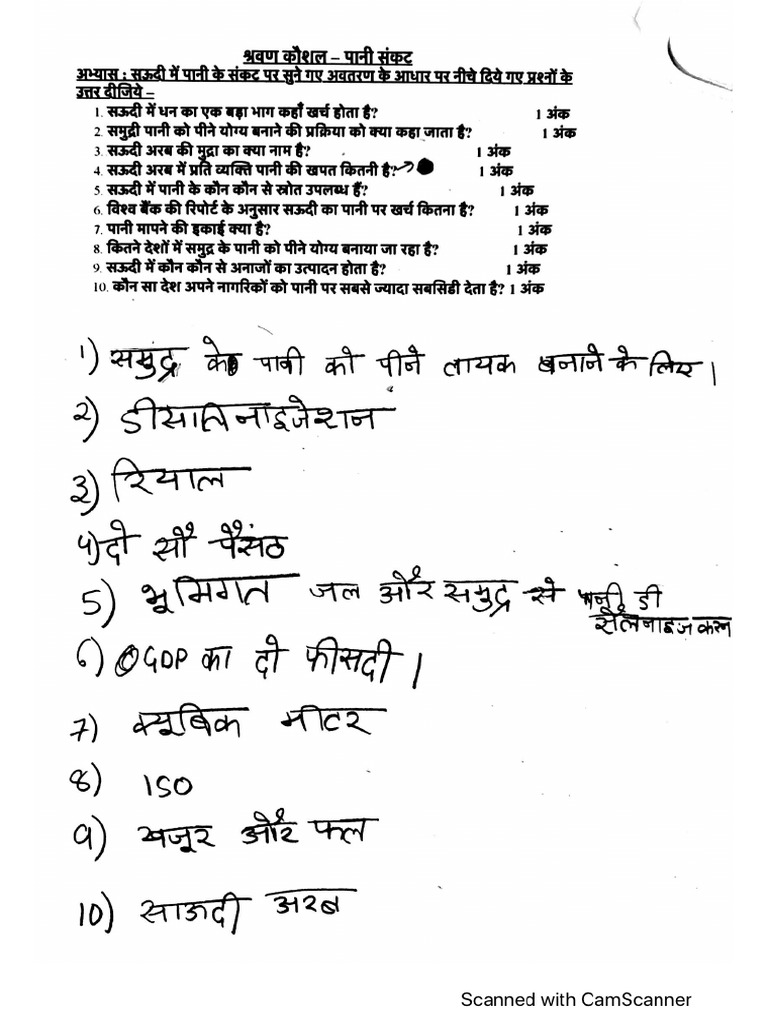 श्रवण कौशल – पानी संकट
अभ्यास : सऊदी में पानी के संकट पर सुने गए अवतरण के आधार पर नीचे दिये गए प्रश्नों के
उत्तर दीजिये –
1. सऊदी में धन का एक बड़ा भाग कहाँ खर्च होता है? 1 अंक
2. समुद्री पानी को पीने योग्य बनाने की प्रक्रिया को क्या कहा जाता है? 1 अंक
3. सऊदी अरब की मुद्रा का क्या नाम है? 1 अंक
4. सऊदी अरब में प्रति व्यक्ति पानी की खपत कितनी है? 1 अंक
5. सऊदी में पानी के कौन कौन से स्रोत उपलब्ध हैं? 1 अंक
6. विश्व बैंक की रिपोर्ट के अनुसार सऊदी का पानी पर खर्च कितना है? 1 अंक
7. पानी मापने की इकाई क्या है? 1 अंक
8. कितने देशों में समुद्र के पानी को पीने योग्य बनाया जा रहा है? 1 अंक
9. सऊदी में कौन कौन से अनाजों का उत्पादन होता है? 1 अंक
10. कौन सा देश अपने नागरिकों को पानी पर सबसे ज्यादा सबसिडी देता है? 1 अंक
1) समुद्र के पानी को पीने लायक बनाने के लिए।
2) डीसालिनाइजेशन
3) रियाल
4) दो सौ पैसंठ
5) भूमिगत जल और समुद्र से पानी डी
सैलनाइज करन
6) GDP का दो फीसदी।
7) क्यूबिक मीटर
8) 150
9) खजूर और फल
10) साऊदी अरब
Scanned with CamScanner